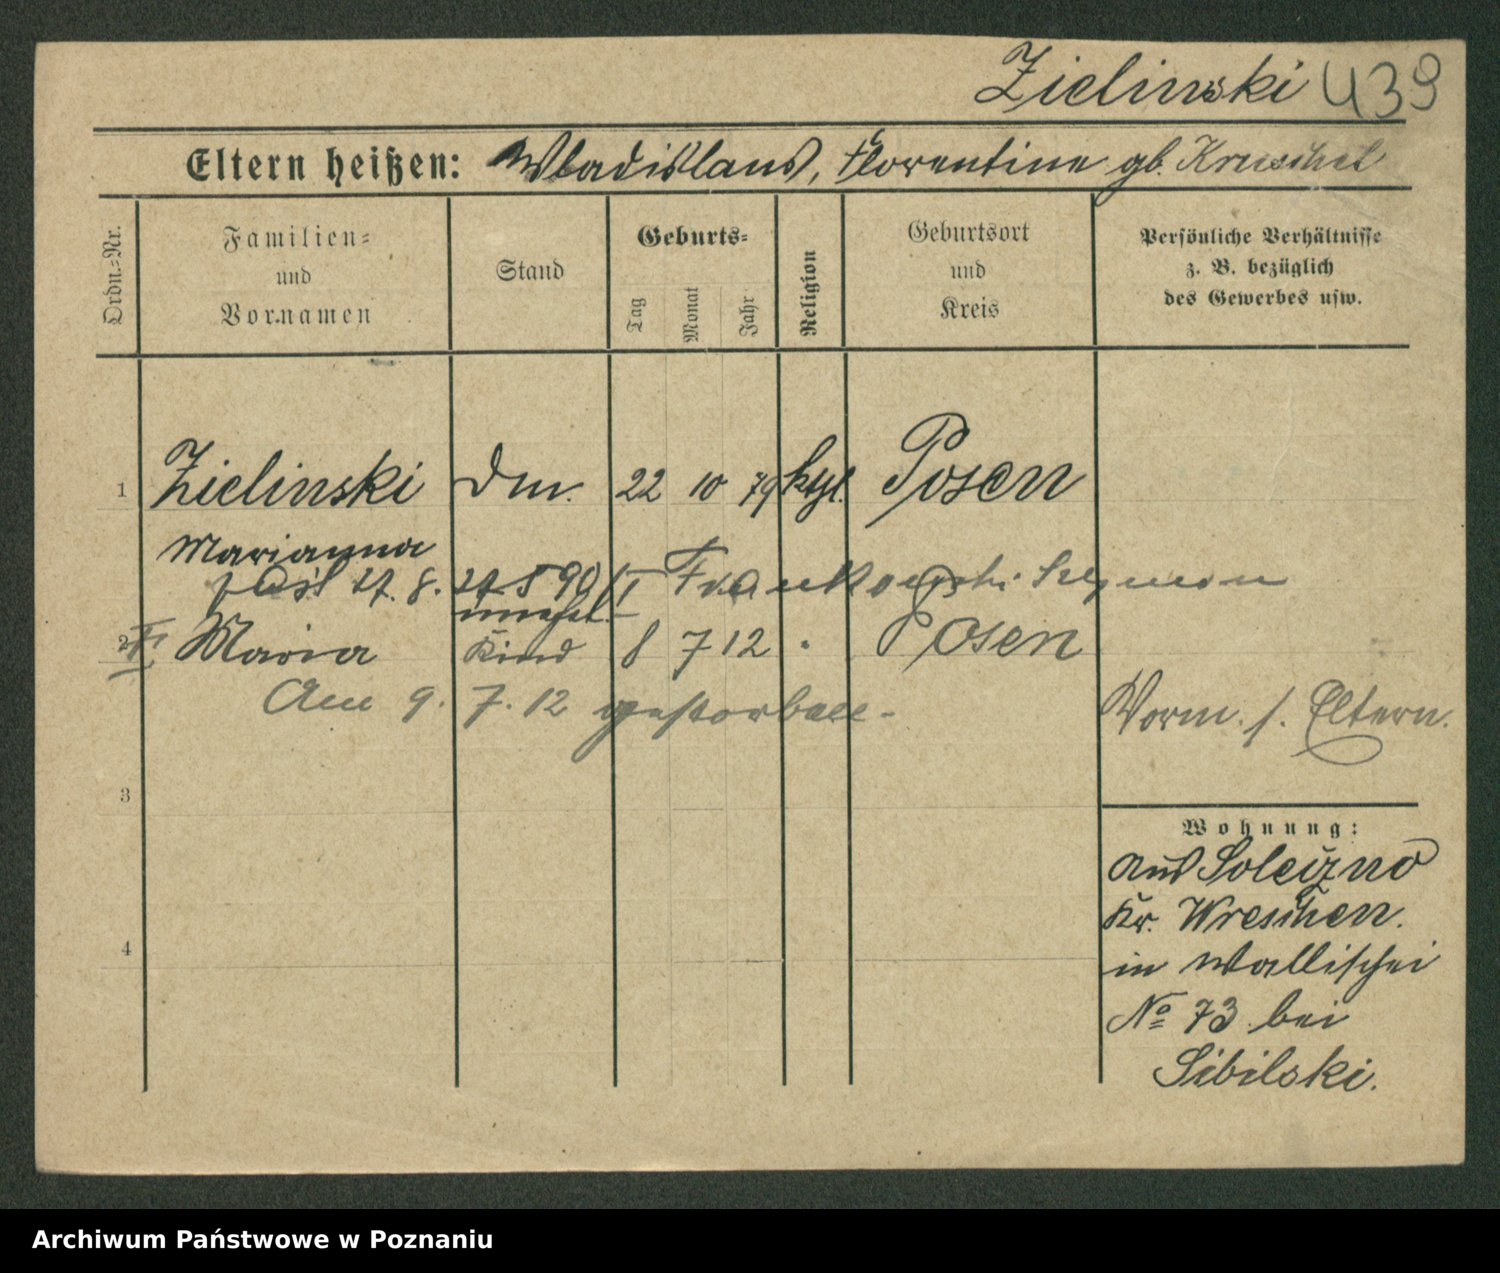 Zielinski 439
Eltern heißen: Wladislaus, Florentine gb. Kruschel
Ordn.-Nr.
Familien-
und
Vornamen
Stand
Geburts-
Tag
Monat
Jahr
Religion
Geburtsort
und
Kreis
Persönliche Verhältnisse
z. B. bezüglich
des Gewerbes usw.
1 Zielinski Dm. 22 10 79 ktl. Posen
Marianna
17. 8. Frankowski
unehel.
2 Maria Kind 8 7 12 Posen
Am 9. 7. 12 gestorben.
Vorm. s. Eltern.
3
Wohnung:
aus Soleczno
Kr. Wreschen.
4
in Wallischei
No 73 bei
Sibilski.
Archiwum Państwowe w Poznaniu